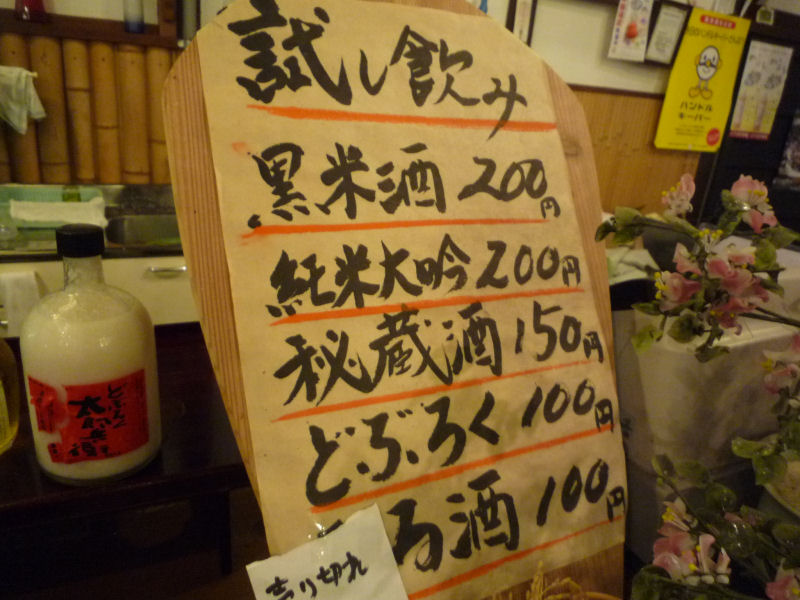 試し飲み
黒米酒 200円
純米大吟 200円
秘蔵酒 150円
どぶろく 100円
酒 100円
売り切れ
どぶろく
ハンドル
キーパー